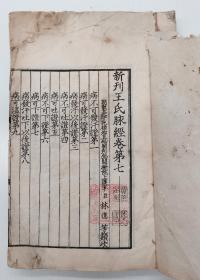 新刊王氏脉經卷第七
臣林億等類次
病不可發汗證第一
病可發汗證第二
病發汗以後證第三
病不可吐證第四
病可吐證第五
病不可下證第六
病可下證第七
病發汗吐下以後證第八
病可溫證第九